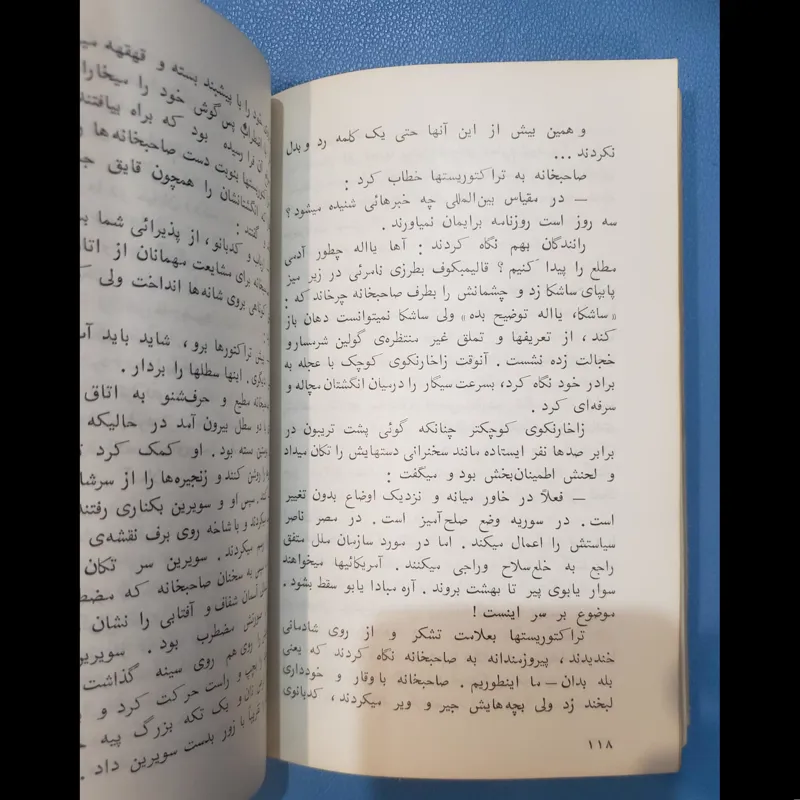 و همین بیش از این آنها حتی یک کلمه رد و بدل
نکردند ...
صاحبخانه به تراکتوریستها خطاب کرد :
— در مقیاس بین‌المللی چه خبرهائی شنیده میشود ؟
سه روز است روزنامه برایمان نمیاورند .
رانندگان بهم نگاه کردند : آها یااله چطور آدمی
مطلع را پیدا کنیم ؟ قالیمبکوف بطرزی نامرئی در زیر میز
پابپای ساشکا زد و چشمانش را بطرف صاحبخانه چرخاند که :
«ساشکا، یااله توضیح بده» ولی ساشکا نمیتوانست دهان باز
کند ، از تعریفها و تملق غیر منتظره‌ی گولین شرمسار و
خجالت زده نشست . آنوقت زاخارنکوی کوچک با عجله به
برادر خود نگاه کرد، بسرعت سیگار را درمیان انگشتان مچاله و
سرفه‌ای کرد .
زاخارنکوی کوچکتر چنانکه گوئی پشت تریبون در
برابر صدها نفر ایستاده مانند سخنرانی دستهایش را تکان میداد
و لحنش اطمینان‌بخش بود و میگفت :
— فعلاً در خاور میانه و نزدیک اوضاع بدون تغییر
است . در سوریه وضع صلح‌آمیز است . در مصر ناصر
سیاستش را اعمال میکند . اما در مورد سازمان ملل متفق
راجع به خلع‌سلاح وراجی میکنند . آمریکائیها میخواهند
سوار یابوی پیر تا بهشت بروند . آره مبادا یابو سقط بشود .
موضوع بر سر اینست !
تراکتوریستها بعلامت تشکر و از روی شادمانی
خندیدند، پیروزمندانه به صاحبخانه نگاه کردند که یعنی
بله بدان — ما اینطوریم . صاحبخانه با وقار و خودداری
لبخند زد ولی بچه‌هایش جیر و ویر میکردند، کدبانوی
۱۱۸
خود را با پیشبند بسته و قهقهه
پس گوش خود را
فرا رسیده بود که براه بیافتند
بنوبت دست صاحبخانه‌ها
انگشتانشان را همچون قایق
و گفتند :
و کدبانو ، از پذیرائی شما
برای مشایعت مهمانان از
بروی شانه‌ها انداخت ولی
تراکتورها برو ، شاید باید
. اینها سطلها را بردار .
مطیع و حرف‌شنو به اتاق
دو سطل بیرون آمد در حالیکه
بسته بود . او کمک کرد
را روشن کنند و زنجیره‌ها را از
سپس او و سویرین بکناری رفتند
و با شاخه روی برف نقشه‌ی
میکردند . سویرین سر تکان
به سخنان صاحبخانه که
آسمان شفاف و آفتابی را نشان
مضطرب بود . سویرین
روی هم روی سینه گذاشت
و راست حرکت کرد و
و یک تکه بزرگ پیه
با زور بدست سویرین داد .